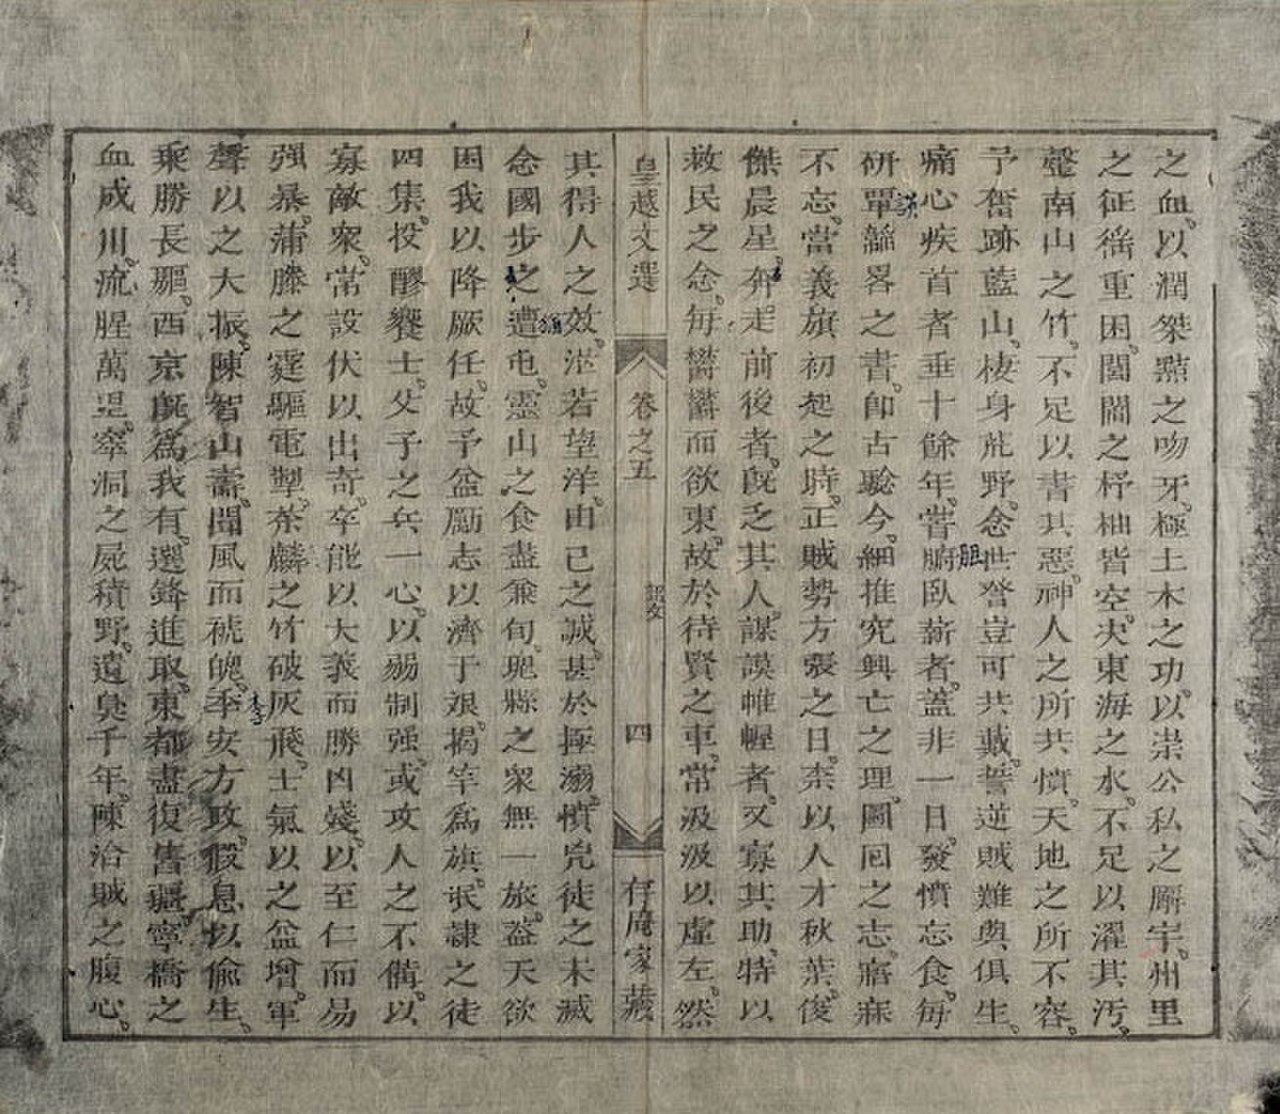 之血。以潤桀黠之吻牙。極土木之功。以崇公私之廨宇。州里
之征徭重困。閭閻之杼柚皆空。决東海之水。不足以濯其汚。
罄南山之竹。不足以書其惡。神人之所共憤。天地之所不容。
予奮跡藍山。棲身荒野。念世讐豈可共戴。誓逆賊難與俱生。
痛心疾首者垂十餘年。嘗腑胆臥薪者。蓋非一日。發憤忘食。每
研覃韜畧之書。卽古驗今。細推究興亡之理。圖囘之志。寤寐
不忘。當義旗初起之時。正賊勢方張之日。柰以人才秋葉。俊
傑晨星。奔走前後者。旣乏其人。謀謨帷幄者。又寡其助。特以
救民之念。每鬱鬱而欲東。故於待賢之車。常汲汲以虛左。然
皇越文選 卷之五 詔文 四 存庵家藏
其得人之效。茫若望洋。由己之誠。甚於拯溺。憤兇徒之未滅
念國步之遭屯。靈山之食盡兼旬。瑰縣之衆無一旅。盖天欲
困我以降厥任。故予益勵志以濟于艱。揭竿爲旗。氓隷之徒
四集。投醪饗士。父子之兵一心。以弱制强。或攻人之不備。以
寡敵衆。常設伏以出奇。卒能以大義而勝凶殘。以至仁而易
强暴。蒲滕之霆驅電掣。茶麟之竹破灰飛。士氣以之益增。軍
聲以之大振。陳智山壽。聞風而褫魄。李安方政。假息以偸生。
乘勝長驅。西京旣爲我有。選鋒進取。東都盡復舊疆。寧橋之
血成川。流腥萬里。窣洞之屍積野。遺臭千年。陳洽賊之腹心。